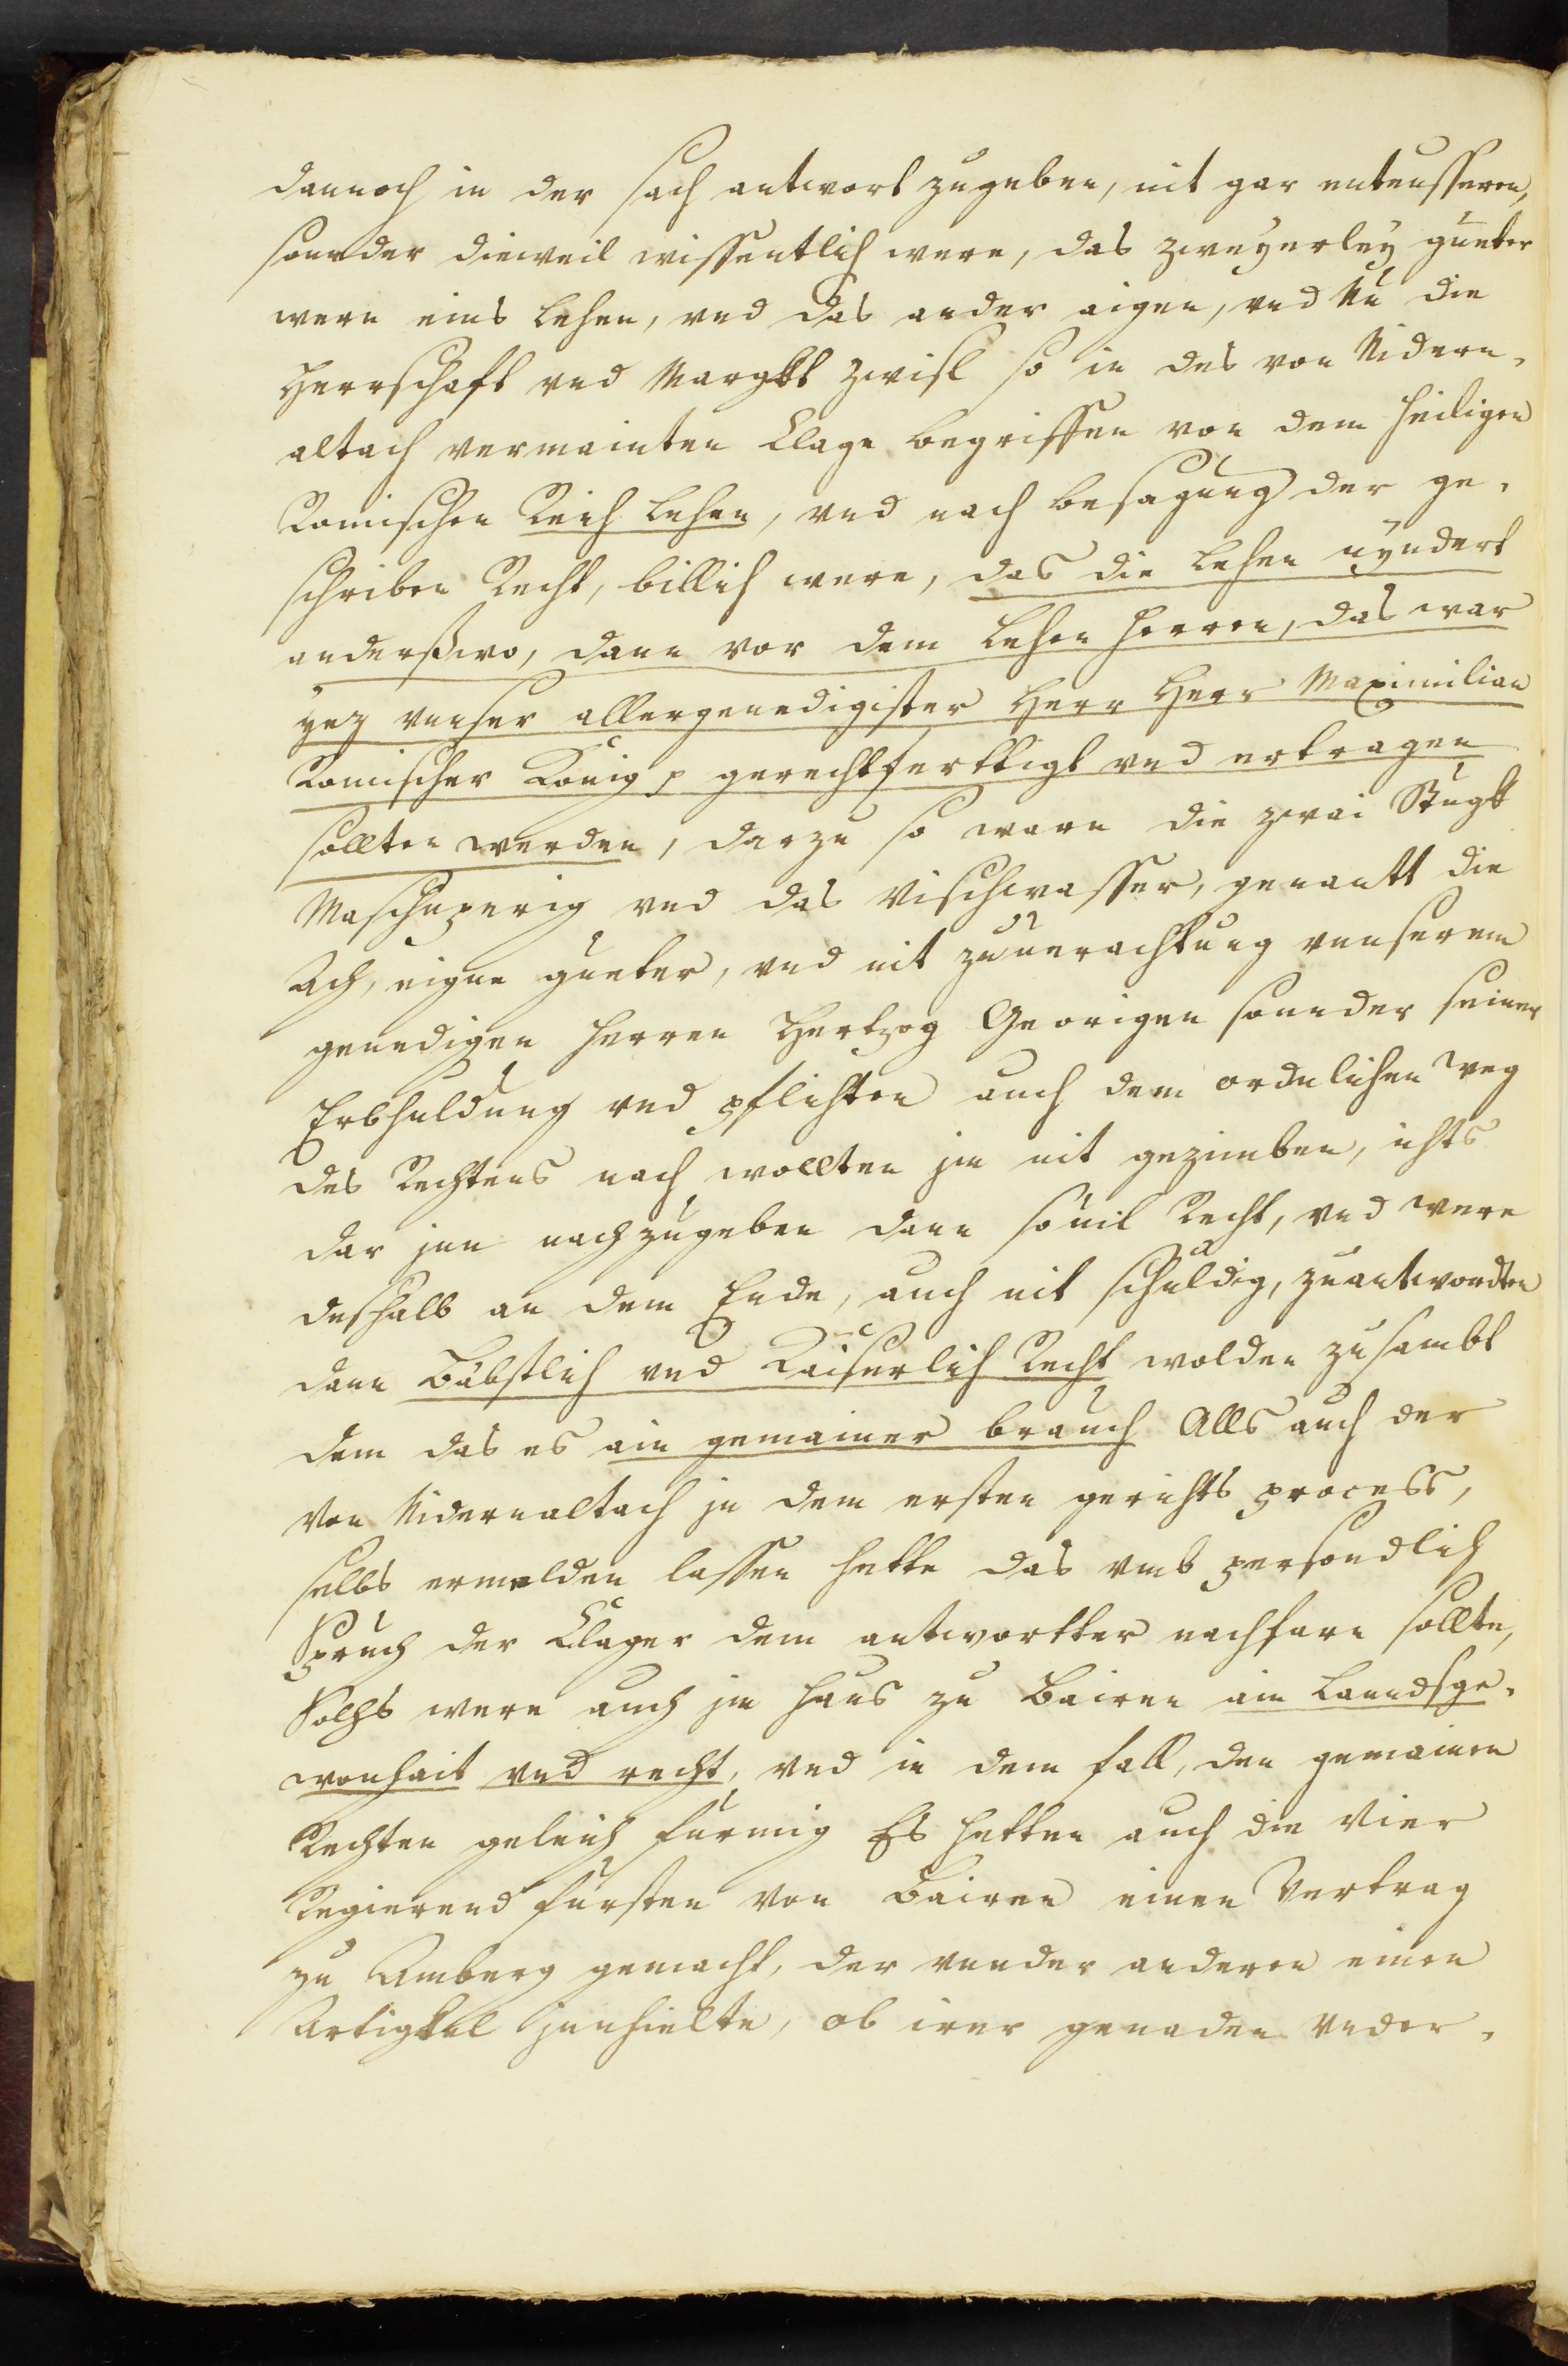 dannoch in der sach antwort zugeben, nit gar enteussern,
sonnder dieweil wissentlich were, das zweyerley gueter
wern eins Lehen, vnd das ander aigen, vnd Nu die
Herrschaft vnd Margkt Zwisl so in des von Nidern-
altach vermainten Clage begriffen von dem heiligen
Romischen Reich Lehen, vnd nach besagung der ge-
schriben Recht, billich were, das die Lehen nyndert
anderßwo, dann vor dem Lehen herren, das war
yez vnnser allergenedigister Herr Herr Maximilian
Romischer König p gerechtferttigt vnd ertragen
sollten werden, darzu so warn die zwai Stugk
Maschnperig vnd das Vischwasser, genantt die
Ach, eigne gueter, vnd nit zuuerachtung vnnserem
genedigen herren Hertzog Georigen sonnder seiner
Erbhuldung vnd pflichten auch dem ordnlichen weg
des Rechtens nach wollten jm nit gezimben, ichts
dar jnn nachzugeben dann souil Recht, vnd were
deshalb an dem Ende, auch nit schuldig, zuantwordten
dann Babstlich vnd Kaiserlich Recht wolden zusambt
dem das es ain gemainer brauch Alls auch der
von Nidernaltach jn dem ersten gerichts process,
selbs ermelden lassen hette das vmb persondlich
Spruch der Clager dem antwortter nachfarn sollte,
Solhs were auch jm haus zu Bairen ain Lanndsge-
wonhait vnd recht, vnd in dem fall, den gemainen
Rechten geleich furmig Es hetten auch die Vier
Regierend fursten von Bairen einen Vertrag
zu Amberg gemacht, der vnnder anderen einen
Artigkel jnnhielte, ob irer genaden Vnder-